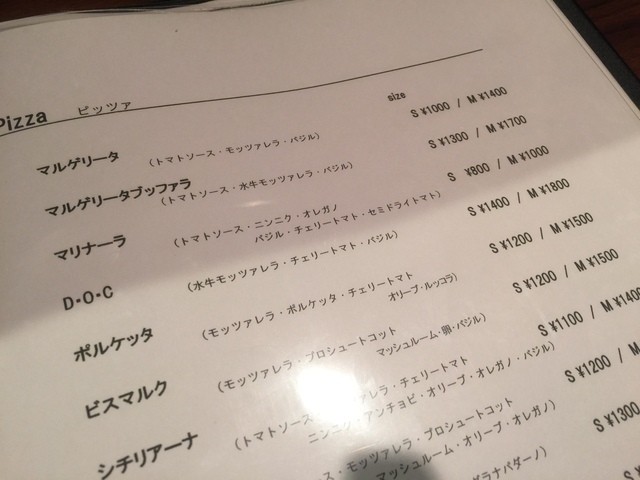 Pizza ピッツァ
size
マルゲリータ (トマトソース・モッツァレラ・バジル) S ¥1000 / M ¥1400
マルゲリータブッファラ (トマトソース・水牛モッツァレラ・バジル) S ¥1300 / M ¥1700
マリナーラ (トマトソース・ニンニク・オレガノ S ¥800 / M ¥1000
バジル・チェリートマト・セミドライトマト)
D・O・C (水牛モッツァレラ・チェリートマト・バジル) S ¥1400 / M ¥1800
ポルケッタ (モッツァレラ・ポルケッタ・チェリートマト S ¥1200 / M ¥1500
オリーブ・ルッコラ)
ビスマルク (モッツァレラ・プロシュートコット S ¥1200 / M ¥1500
マッシュルーム・卵・バジル)
シチリアーナ (トマトソース・モッツァレラ・チェリートマト S ¥1100 / M ¥1400
ニンニク・アンチョビ・オリーブ・オレガノ・バジル)
ース・モッツァレラ・プロシュートコット S ¥1200 / M
マッシュルーム・オリーブ・オレガノ)
グラナパダーノ) S ¥1300